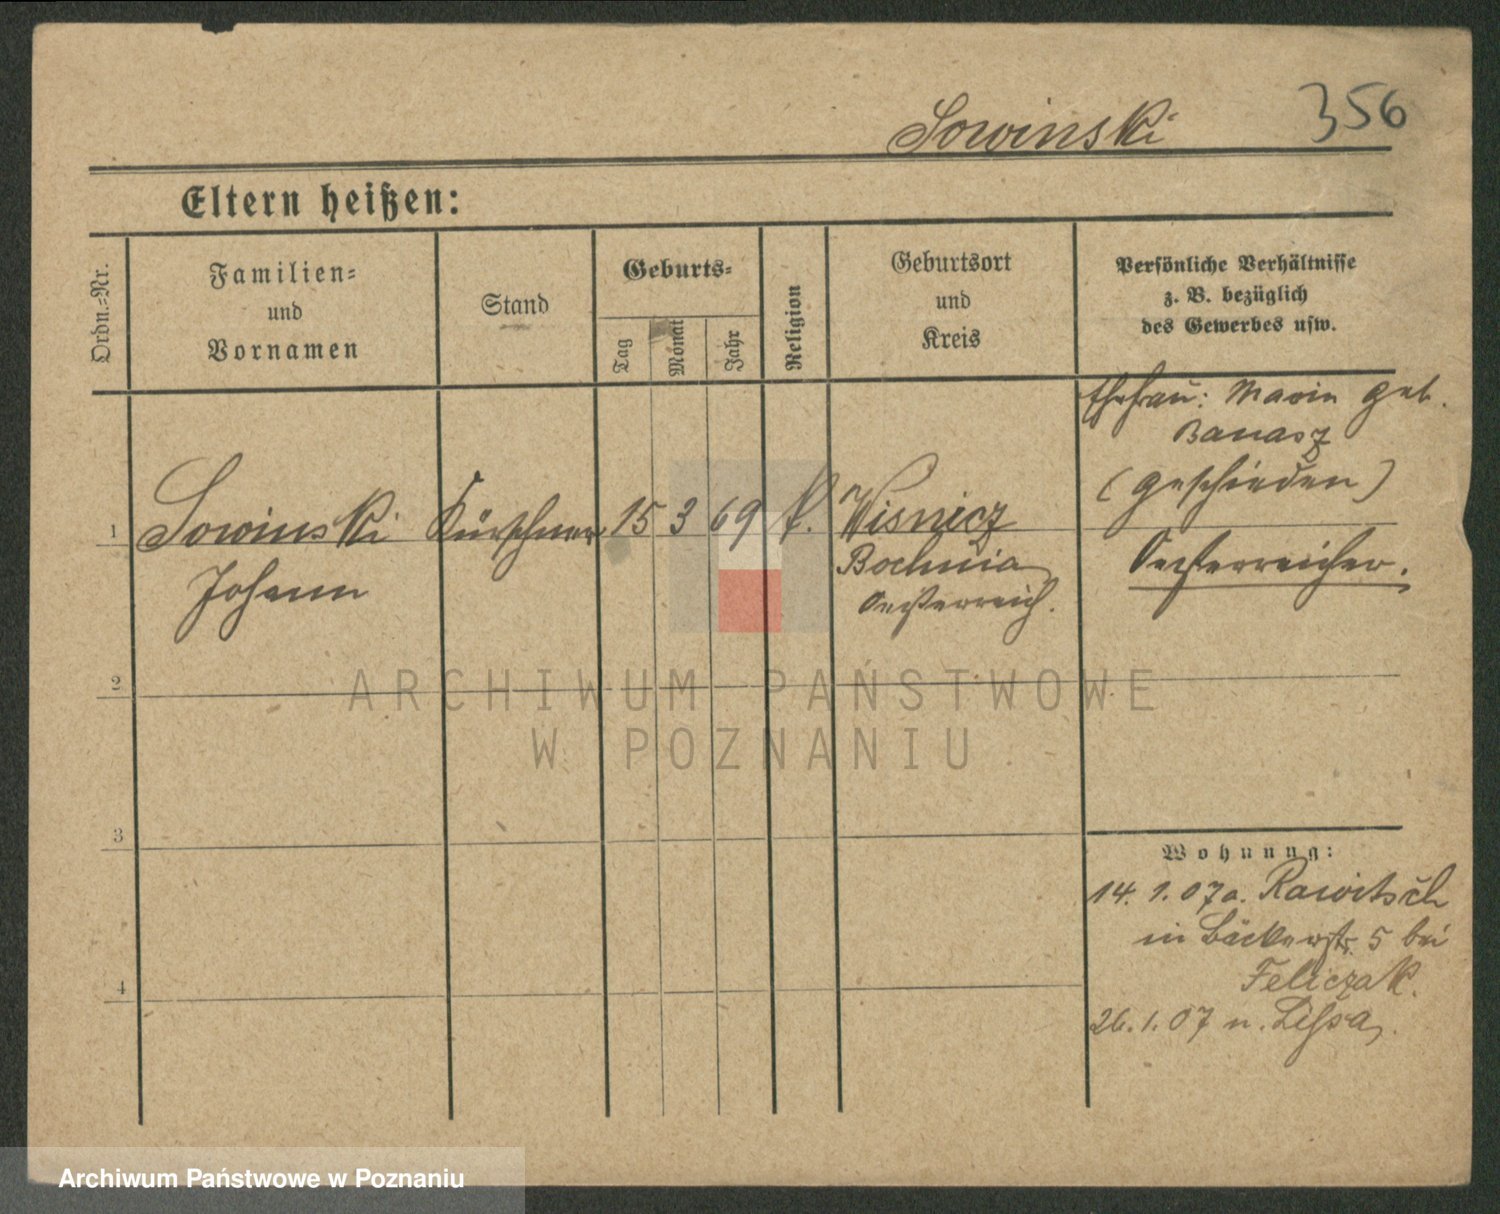 Sowinski
356
Eltern heißen:
Ordn.=Nr.
Familien=
und
Vornamen
Stand
Geburts=
Tag
Monat
Jahr
Religion
Geburtsort
und
Kreis
Persönliche Verhältnisse
z. B. bezüglich
des Gewerbes usw.
Ehefrau: Marie geb.
Banasz
(geschieden)
1 Sowinski Kürschner 15 3 69 k. Wisnicz
Johann
Bochnia
Oesterreich.
Oesterreicher.
2
3
4
Wohnung:
14. 1. 07 a. Rawitsch
in Bäckerstr. 5 bei
Feliczak.
26. 1. 07 n. Lissa.
ARCHIWUM PAŃSTWOWE
W POZNANIU
Archiwum Państwowe w Poznaniu